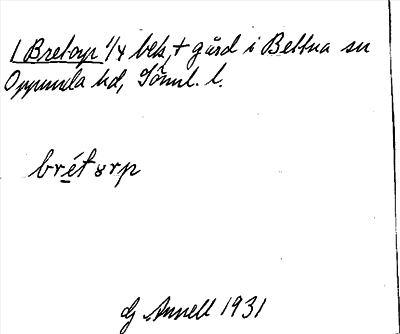 1 Bretorp 1/4 bek, + gård i Bettna sn
Oppunda hd, Söml. l.
brét orp
Annell 1931